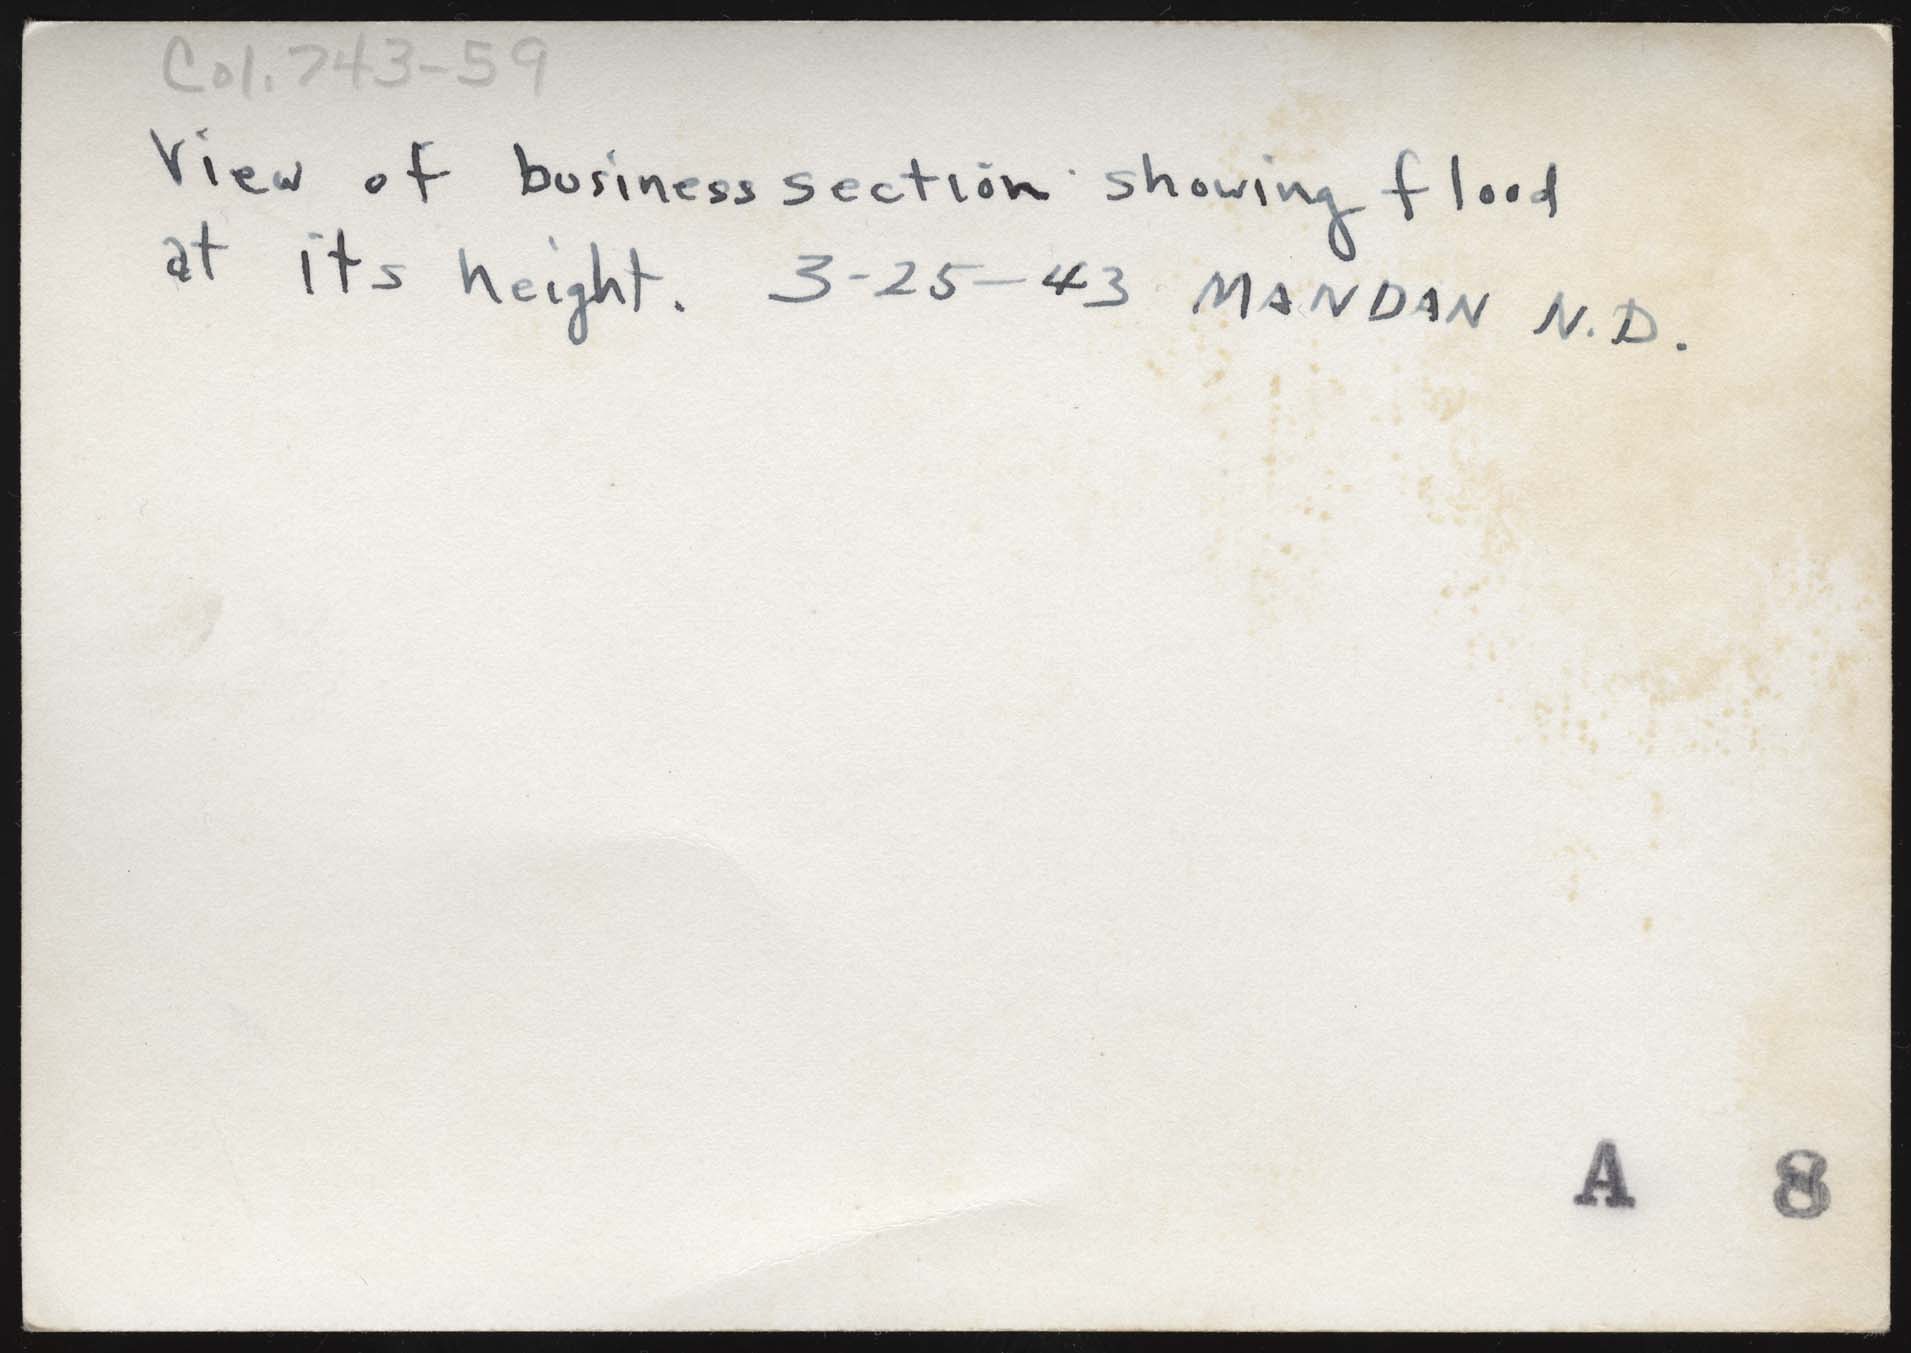 Col. 743-59
View of business section showing flood
at its height. 3-25-43 MANDAN N.D.
A 8